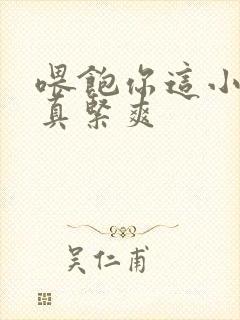 喂飽你這小
真緊爽
吴仁甫